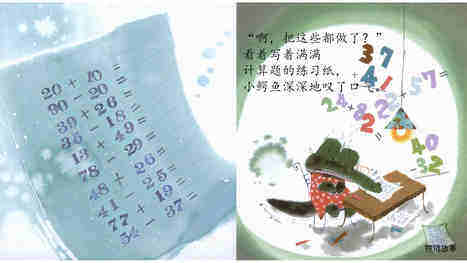 20 + 10 =
90 - 20 =
39 + 26 =
35 - 18 =
13 + 49 =
78 - 29 =
48 + 26 =
41 - 25 =
77 + 19 =
54 - 37 =
“啊，把这些都做了？”
看着写着满满
计算题的练习纸，
小鳄鱼深深地叹了口气。
37
+
41
57
=
24+82
2
=
0
40
32